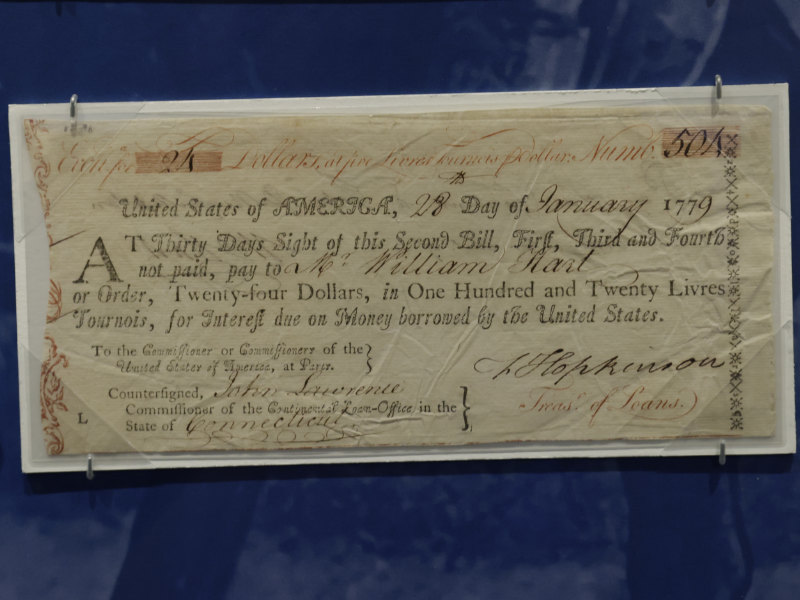 Exch. for 24 Dollars, at five Livres Tournois ⅌ Dollar. Numb. 504
United States of AMERICA, 28 Day of January 1779
AT Thirty Days Sight of this Second Bill, Firſt, Third and Fourth
not paid, pay to Mr. William Hart
or Order, Twenty-four Dollars, in One Hundred and Twenty Livres
Tournois, for Intereſt due on Money borrowed by the United States.
To the Commiſſioner or Commiſſioners of the
United States of America, at Paris.
F Hopkinson
Treasr. of Loans.
Countersigned, John Lawrence
Commiſſioner of the Continental Loan-Office in the
L State of Connecticut.